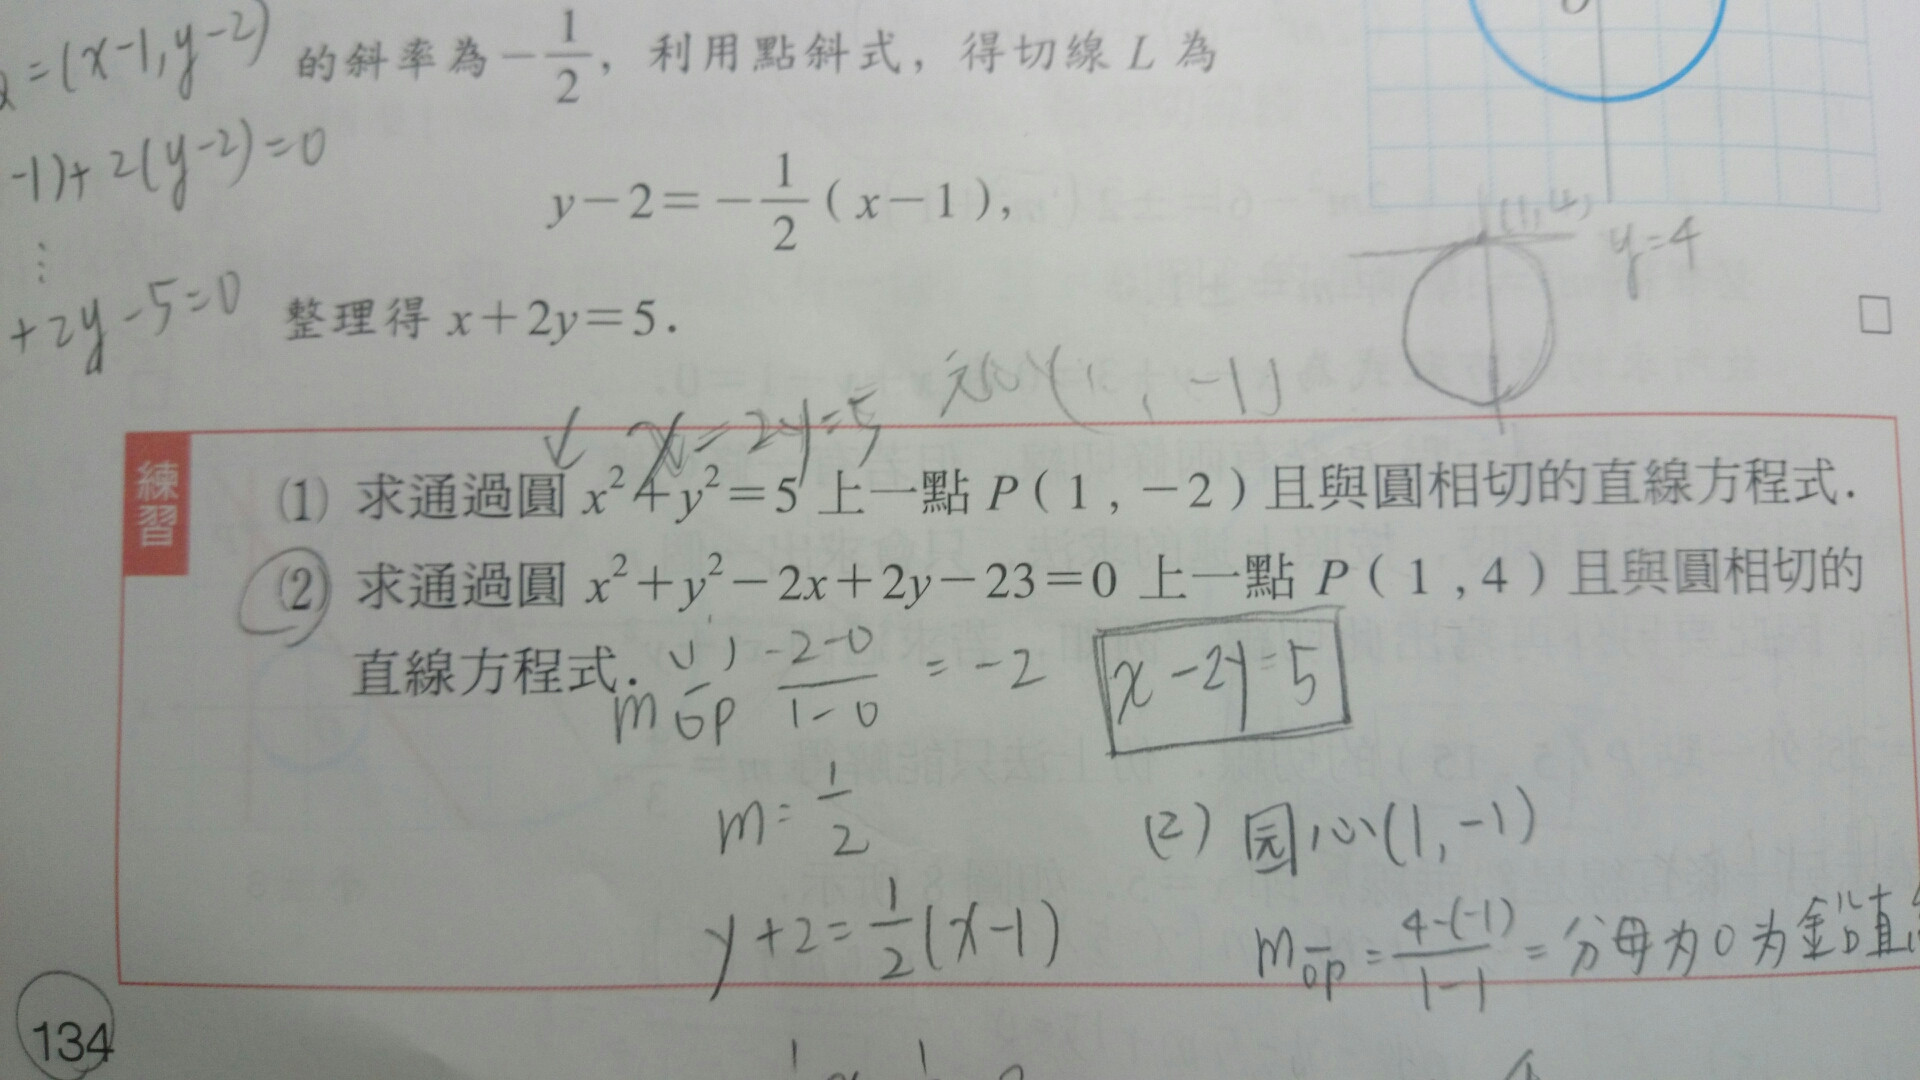 =(x-1,y-2)
的斜率為-1/2，利用點斜式，得切線 L 為
-1)+2(y-2)=0
y-2=-1/2(x-1),
⋮
(1,4)
y=4
+2y-5=0
整理得 x+2y=5.
x=2y=5
, -1)
練習
(1) 求通過圓 x²+y²=5 上一點 P(1,-2)且與圓相切的直線方程式.
(2) 求通過圓 x²+y²-2x+2y-23=0 上一點 P(1,4)且與圓相切的
直線方程式.
(1) m OP -2-0/1-0 = -2
x-2y=5
m=1/2
(2) 园心(1,-1)
y+2=1/2(x-1)
m OP = 4-(-1)/1-1 = 分母为0为鉛直
134